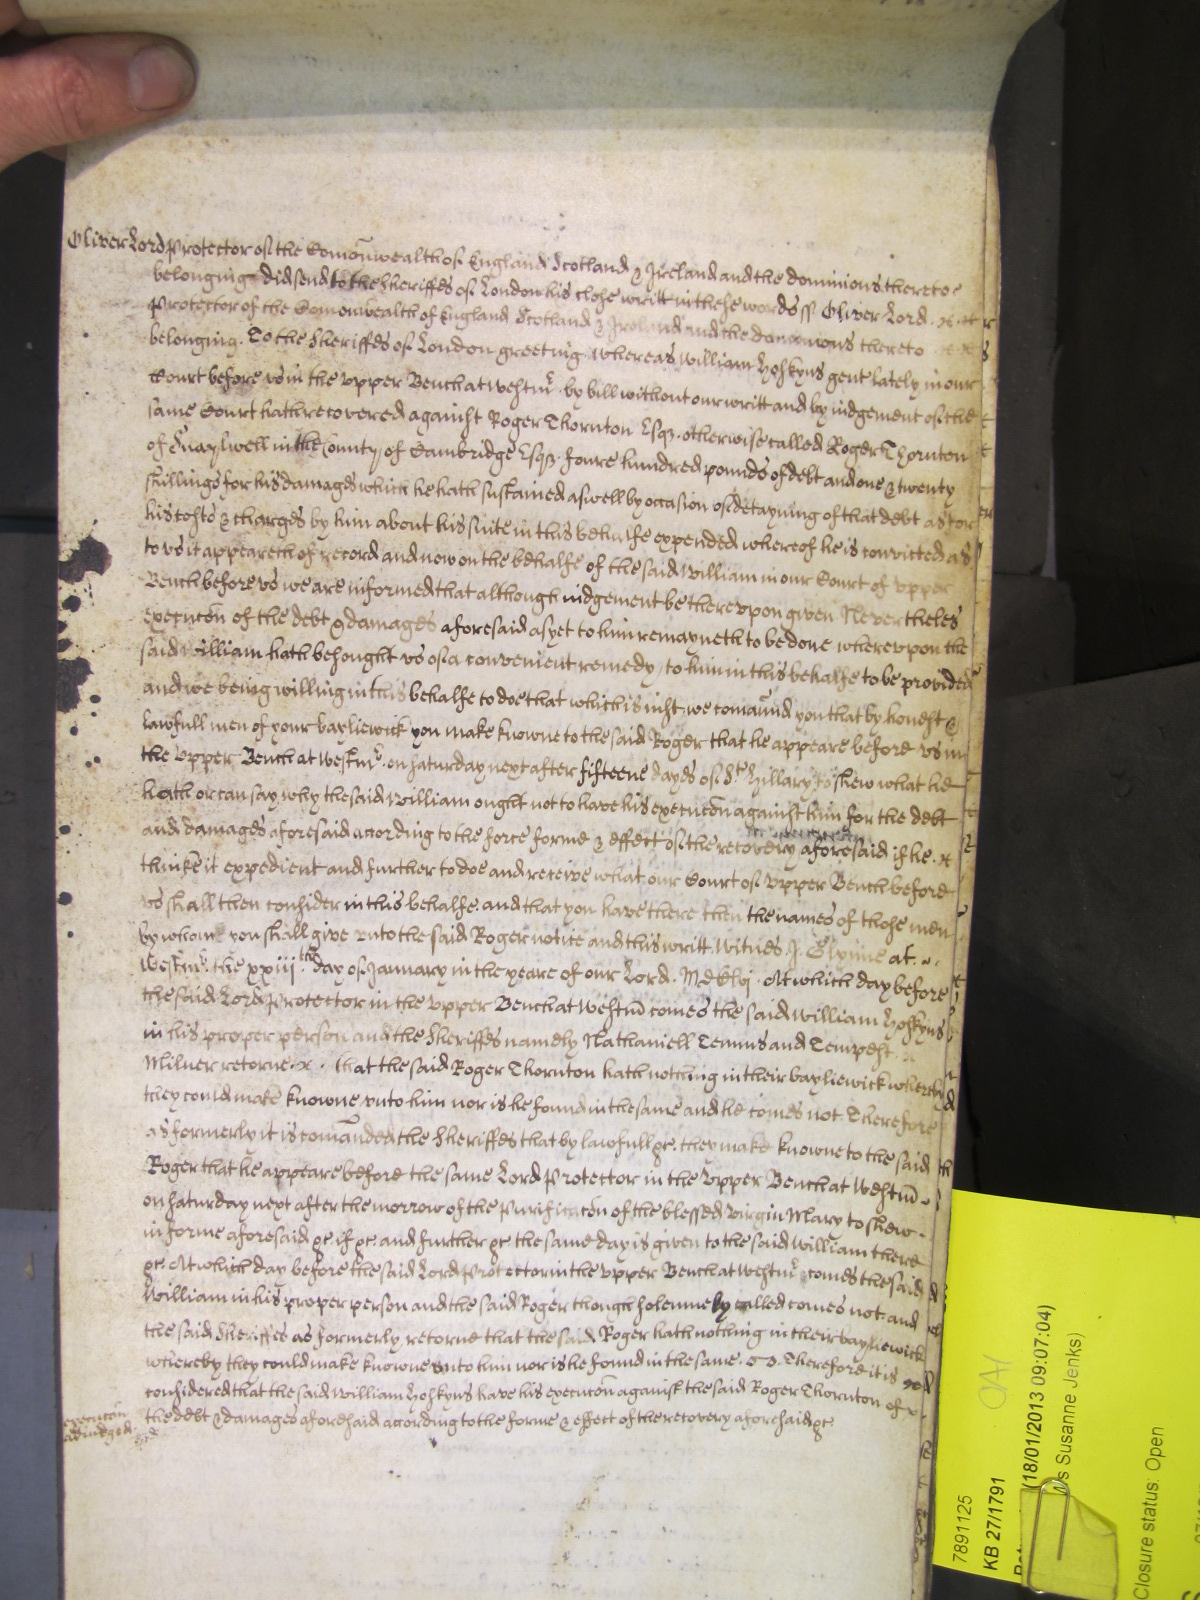 Oliver Lord Protector of the Comonwealth of England Scotland & Ireland and the dominions thereto
belonging did send to the Sheriffes of London his close writt in these words ss Oliver Lord
Protector of the Comonwealth of England Scotland & Ireland and the dominions thereto
belonging. To the Sheriffes of London greeting. Whereas William Hoskyns gent lately in our
Court before us in the Upper Bench at Westmr. by bill without our writt and by iudgement of the
same Court hath recovered against Roger Thornton Esqr. otherwise called Roger Thornton
of Snaylwell in the County of Cambridge Esqr. foure hundred pounds of debt and one & twenty
shillings for his damages which he hath sustained aswell by occasion of detayning of that debt as for
his costs & charges by him about his suite in this behalfe expended whereof he is convicted as
to us it appeareth of record and now on the behalfe of the said William in our Court of Upper
Bench before us we are informed that although iudgement be thereupon given Neverthelés
execucon of the debt & damages aforesaid as yet to him remayneth to be done whereupon the
said William hath besought us of a convenient remedy to him in this behalfe to be provided
and we being willing in this behalfe to doe that which is iust we comaund you that by honest &
lawfull men of your bayliewick you make knowne to the said Roger that he appeare before us in
the Upper Bench at Westmr. on saturday next after fifteene dayes of St Hillary to shew what he
hath or can say why the said William ought not to have his execucon against him for the debt
and damages aforesaid according to the force forme & effect of the recovery aforesaid if he
thinke it expedient and further to doe and receive what our Court of Upper Bench before
us shall then consider in this behalfe. and that you have there then the names of those men
by whom you shall give unto the said Roger notice and this writt. Witnes J. Glynne at
Westmr. the xxiijth day of January in the yeare of our Lord. MdClvj. At which day before
the said Lord Protector in the Upper Bench at Westm comes the said William Hoskyns
in his proper person and the Sheriffes namely Nathaniell Temms and Tempest
Milner retorne that the said Roger Thornton hath nothing in their bayliewick whereby
they could make knowne unto him nor is he found in the same and he comes not Therefore
as formerly it is comanded the Sheriffes that by lawfull &c. they make knowne to the said
Roger that he appeare before the same Lord Protector in the Upper Bench at Westm
on saturday next after the morrow of the Purificacon of the blessed virgin Mary to shew
in forme aforesaid &c. if &c. and further &c. the same day is given to the said William there
&c. At which day before the said Lord Protector in the Upper Bench at Westmr comes the said
William in his proper person and the said Roger though solemnely called comes not and
the said Sheriffes as formerly retorne that the said Roger hath nothing in their bayliewick
whereby they could make knowne unto him nor is he found in the same. Therefore it is
considered that the said William Hoskyns have his execucon against the said Roger Thornton of
the debt & damages aforesaid acording to the forme & effect of the recovery aforesaid &c.
execucon
adiudged
7891125
KB 27/1791
(18/01/2013 09:07:04)
Susanne Jenks)
Closure status: Open